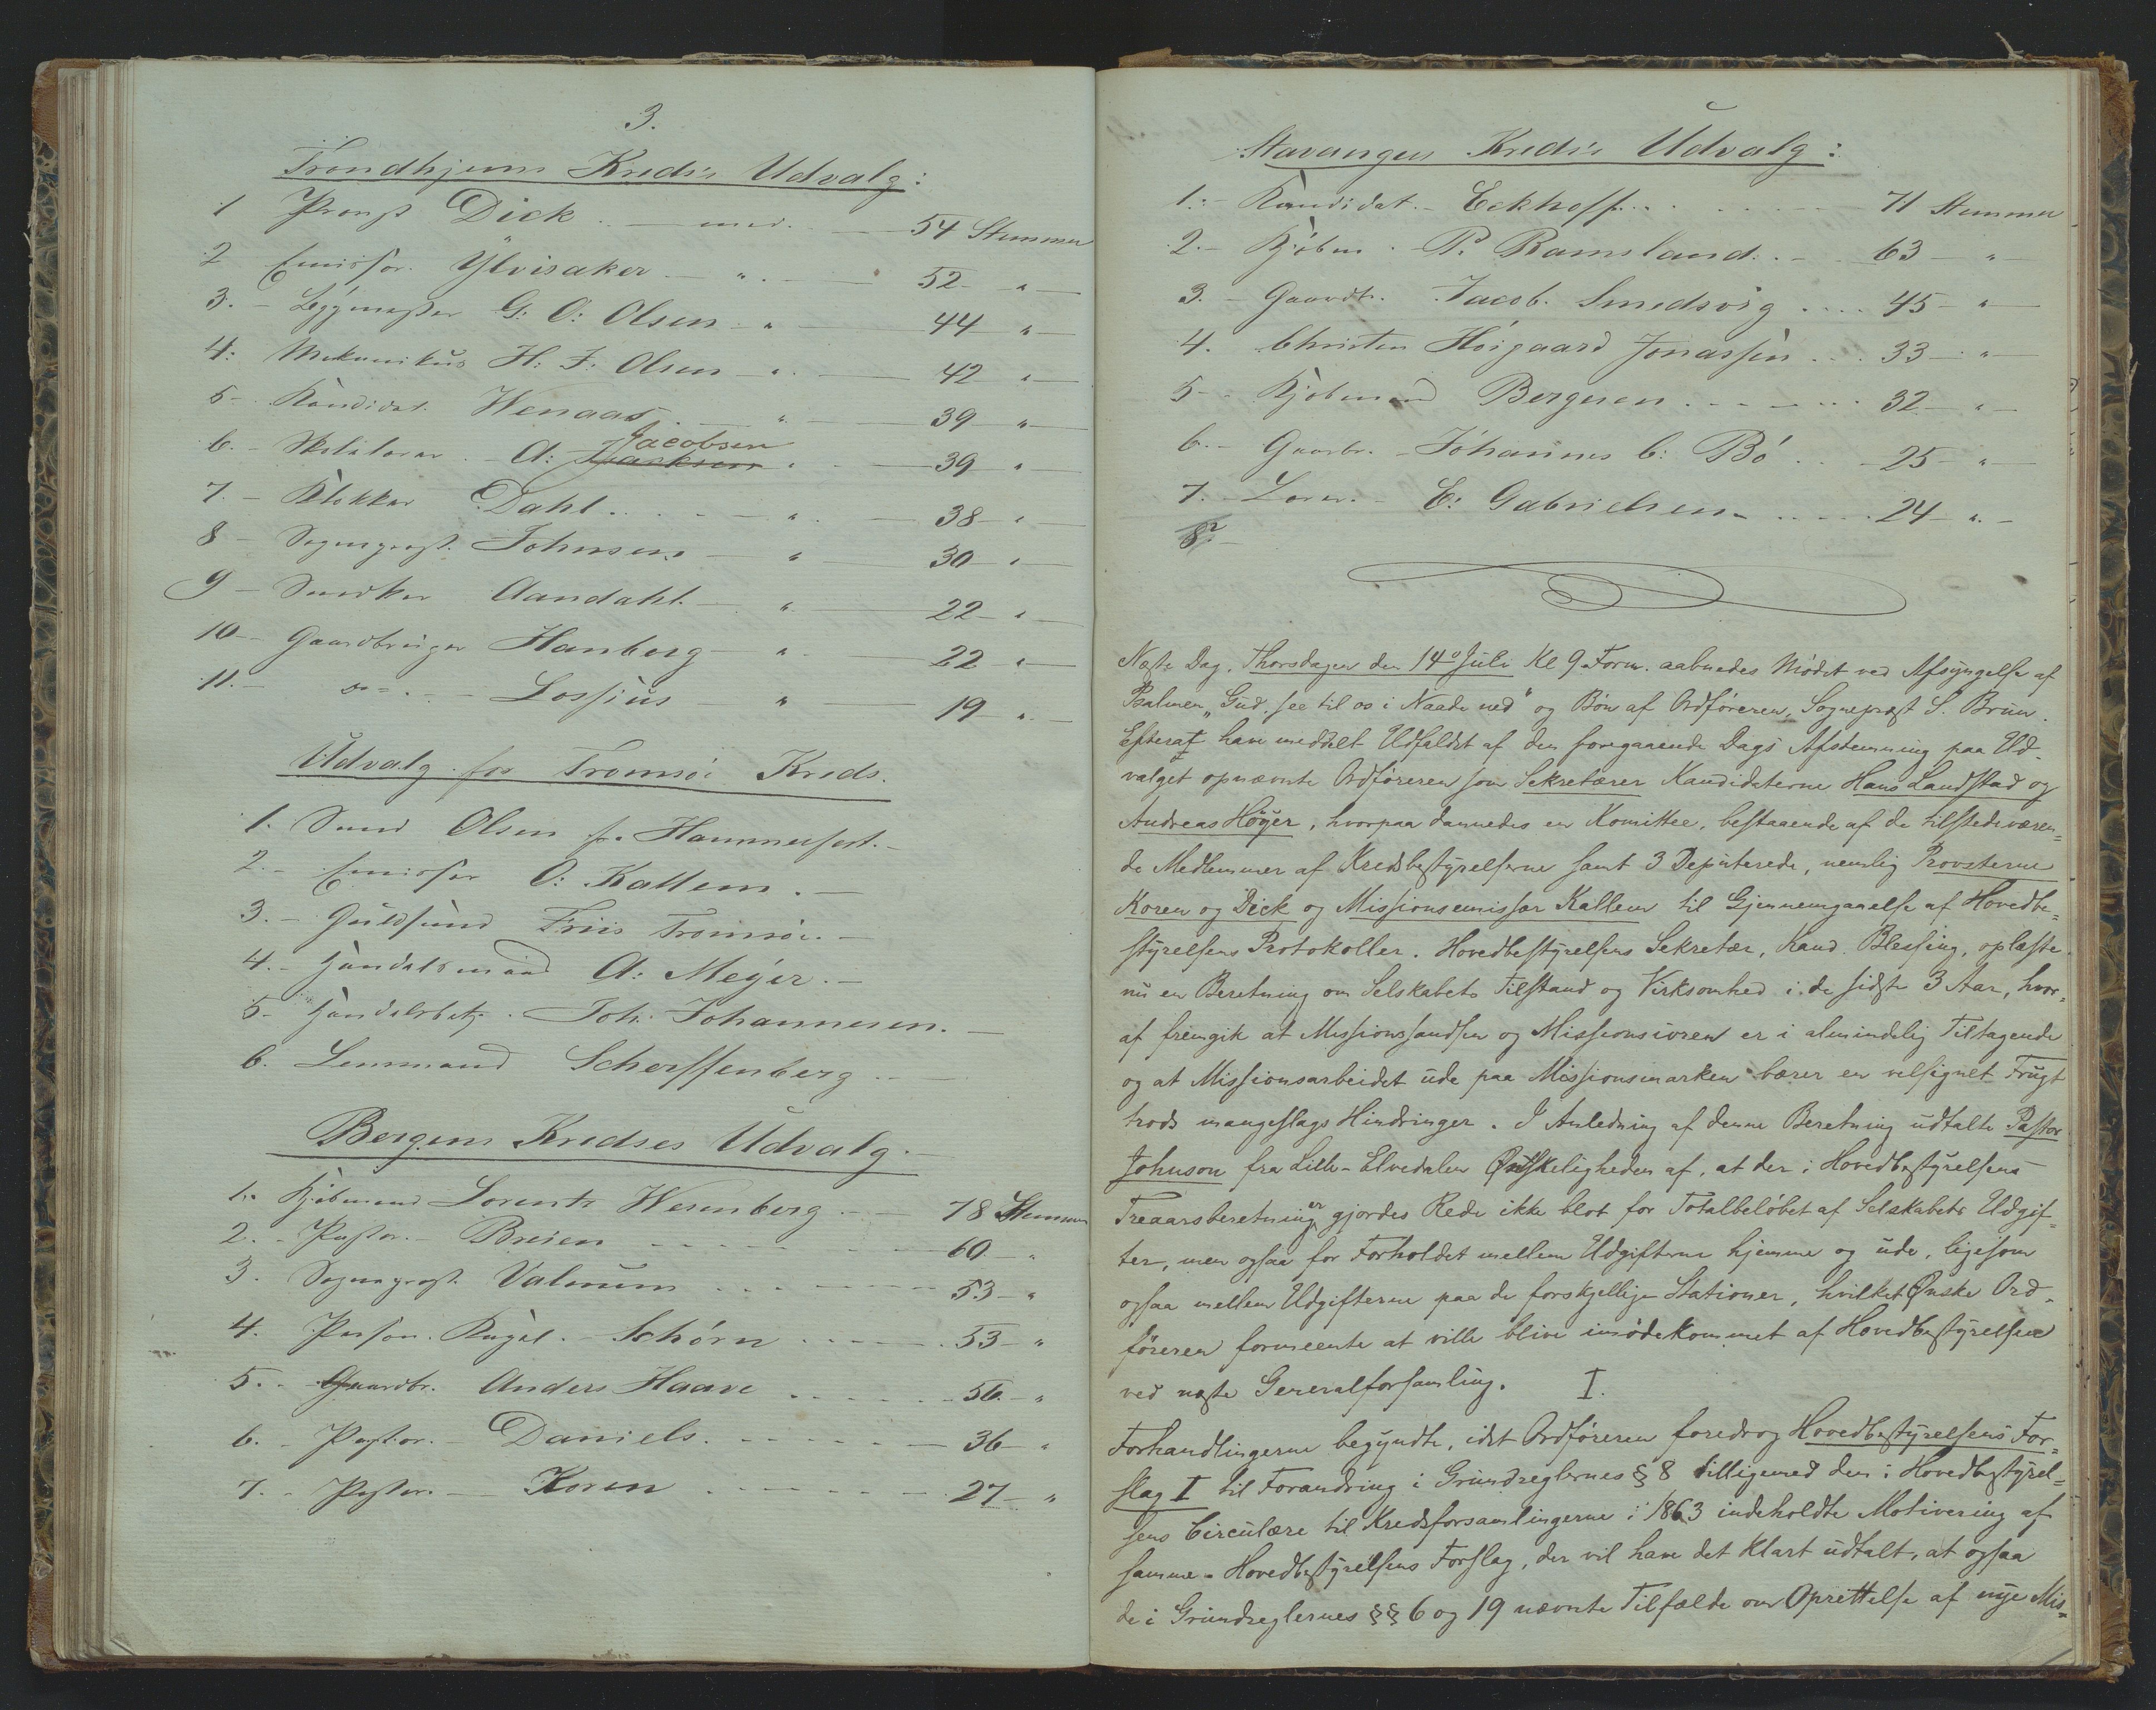 3.
Trondhjems Kreds's Udvalg:
1 Provst Dick - med - 54 Stemmer
2 Emissær Ylvisaker - " - 52 - " -
3. - Byggmester G: O: Olsen - " - 44 " -
4: Mekanikus H: F. Olsen - " - 42 " -
5 - Kandidat Wenaas - " - 39 " -
6. - Skolelærer A: Isaksen Jacobsen " - 39 " -
7. - Klokker Dahl - " - 38 - " -
8 - Sognepræst Johnsen - " - 30 - " -
9 - Snedker Aandahl - " - 22 - " -
10 - Gaardbruger Hanberg - " - 22 - " -
11. - do - Lossius - " - 19 - " -
Udvalg for Tromsö Kreds.
1. Smed Olsen fr. Hammerfest. -
2. - Emissær O: Kallem. -
3. - Guldsmed Friis Tromsöe. -
4. - Handelsmand A: Mejer. -
5. - Handelsbetj. Joh. Johannesen. -
6. Lensmand Scheffenberg -
Bergens Kredses Udvalg. -
1. Kjøbmand Lorentz Wesenberg - 78 Stemmer
2. - Pastor - Breien - 60 - "
3. Sognepræst Valeum - 53 - "
4. Person. Kapel. - Schörn - 53 - "
5. - Gaardbr. Anders Haave - 56 - "
6. - Pastor. Daniels. - 36 - "
7. - Pastor. - Koren - 27 - "
Stavanger Kreds's Udvalg:
1. - Kandidat. - Eckhoff - 71 Stemmer
2. - Kjöbm. P. Ramsland. - 63 - " -
3. - Gaardbr. Jacob Smedsvig - 45 - " -
4. Christen Höigaard Jonassen - 33 - " -
5 - Kjöbmand Bergesen - 32 - " -
6. - Gaardbr. - Johannes C: Bö - 25 - " -
7. - Lærer. - E: Gabrielsen - 24 - " -
8. -
Næste Dag, Thorsdagen den 14de Juli Kl 9 Form. aabnedes Mødet ved Afsyngelse af
Psalmen „Gud see til os i Naade ned" og Bøn af Ordføreren, Sognepræst S. Brun.
Efterat have meddelt Udfaldet af den foregaaende Dags Afstemning paa Ud-
valget opnævnte Ordføreren som Sekretærer Kandidaterne Hans Landstad og
Andreas Høyer, hvorpaa dannedes en Komittee, bestaaende af de tilstedeværen=
de Medlemmer af Kredsbestyrelserne samt 3 Deputerede, nemlig Provsterne
Koren og Dick og Missionsemissær Kallem til Gjennemgaaelse af Hovedbe=
styrelsens Protokoller. Hovedbestyrelsens Sekretær, Kand. Blessing, oplæste
nu en Beretning om Selskabets Tilstand og Virksomhed i de sidste 3 Aar, hvor=
af fremgik at Missionssandsen og Missionsiveren er i almindelig Tiltagende
og at Missionsarbeidet ude paa Missionsmarken bærer en velsignet Frugt
trods mangeslags Hindringer. I Anledning af denne Beretning udtalte Pastor
Johnson fra Lille-Elvedalen Ønskeligheden af, at der i Hovedbestyrelsens
Treaarsberetninger gjordes Rede ikke blot for Totalbeløbet af Selskabets Udgif=
ter, men ogsaa for Forholdet mellem Udgifterne hjemme og ude, ligesom
ogsaa mellem Udgifterne paa de forskjellige Stationer, hvilket Ønske Ord=
føreren formeente at ville blive imødekommet af Hovedbestyrelsen
ved næste Generalforsamling. I.
Forhandlingerne begyndte, idet Ordføreren foredrog Hovedbestyrelsens For=
slag I til Forandring i Grundreglernes § 8 tilligemed den i Hovedbestyrel=
sens Circulære til Kredsforsamlingerne i 1863 indeholdte Motivering af
samme. Hovedbestyrelsens Forslag, der vil have det klart udtalt, at ogsaa
de i Grundreglernes §§ 6 og 19 nævnte Tilfælde om Oprettelse af nye Mis=